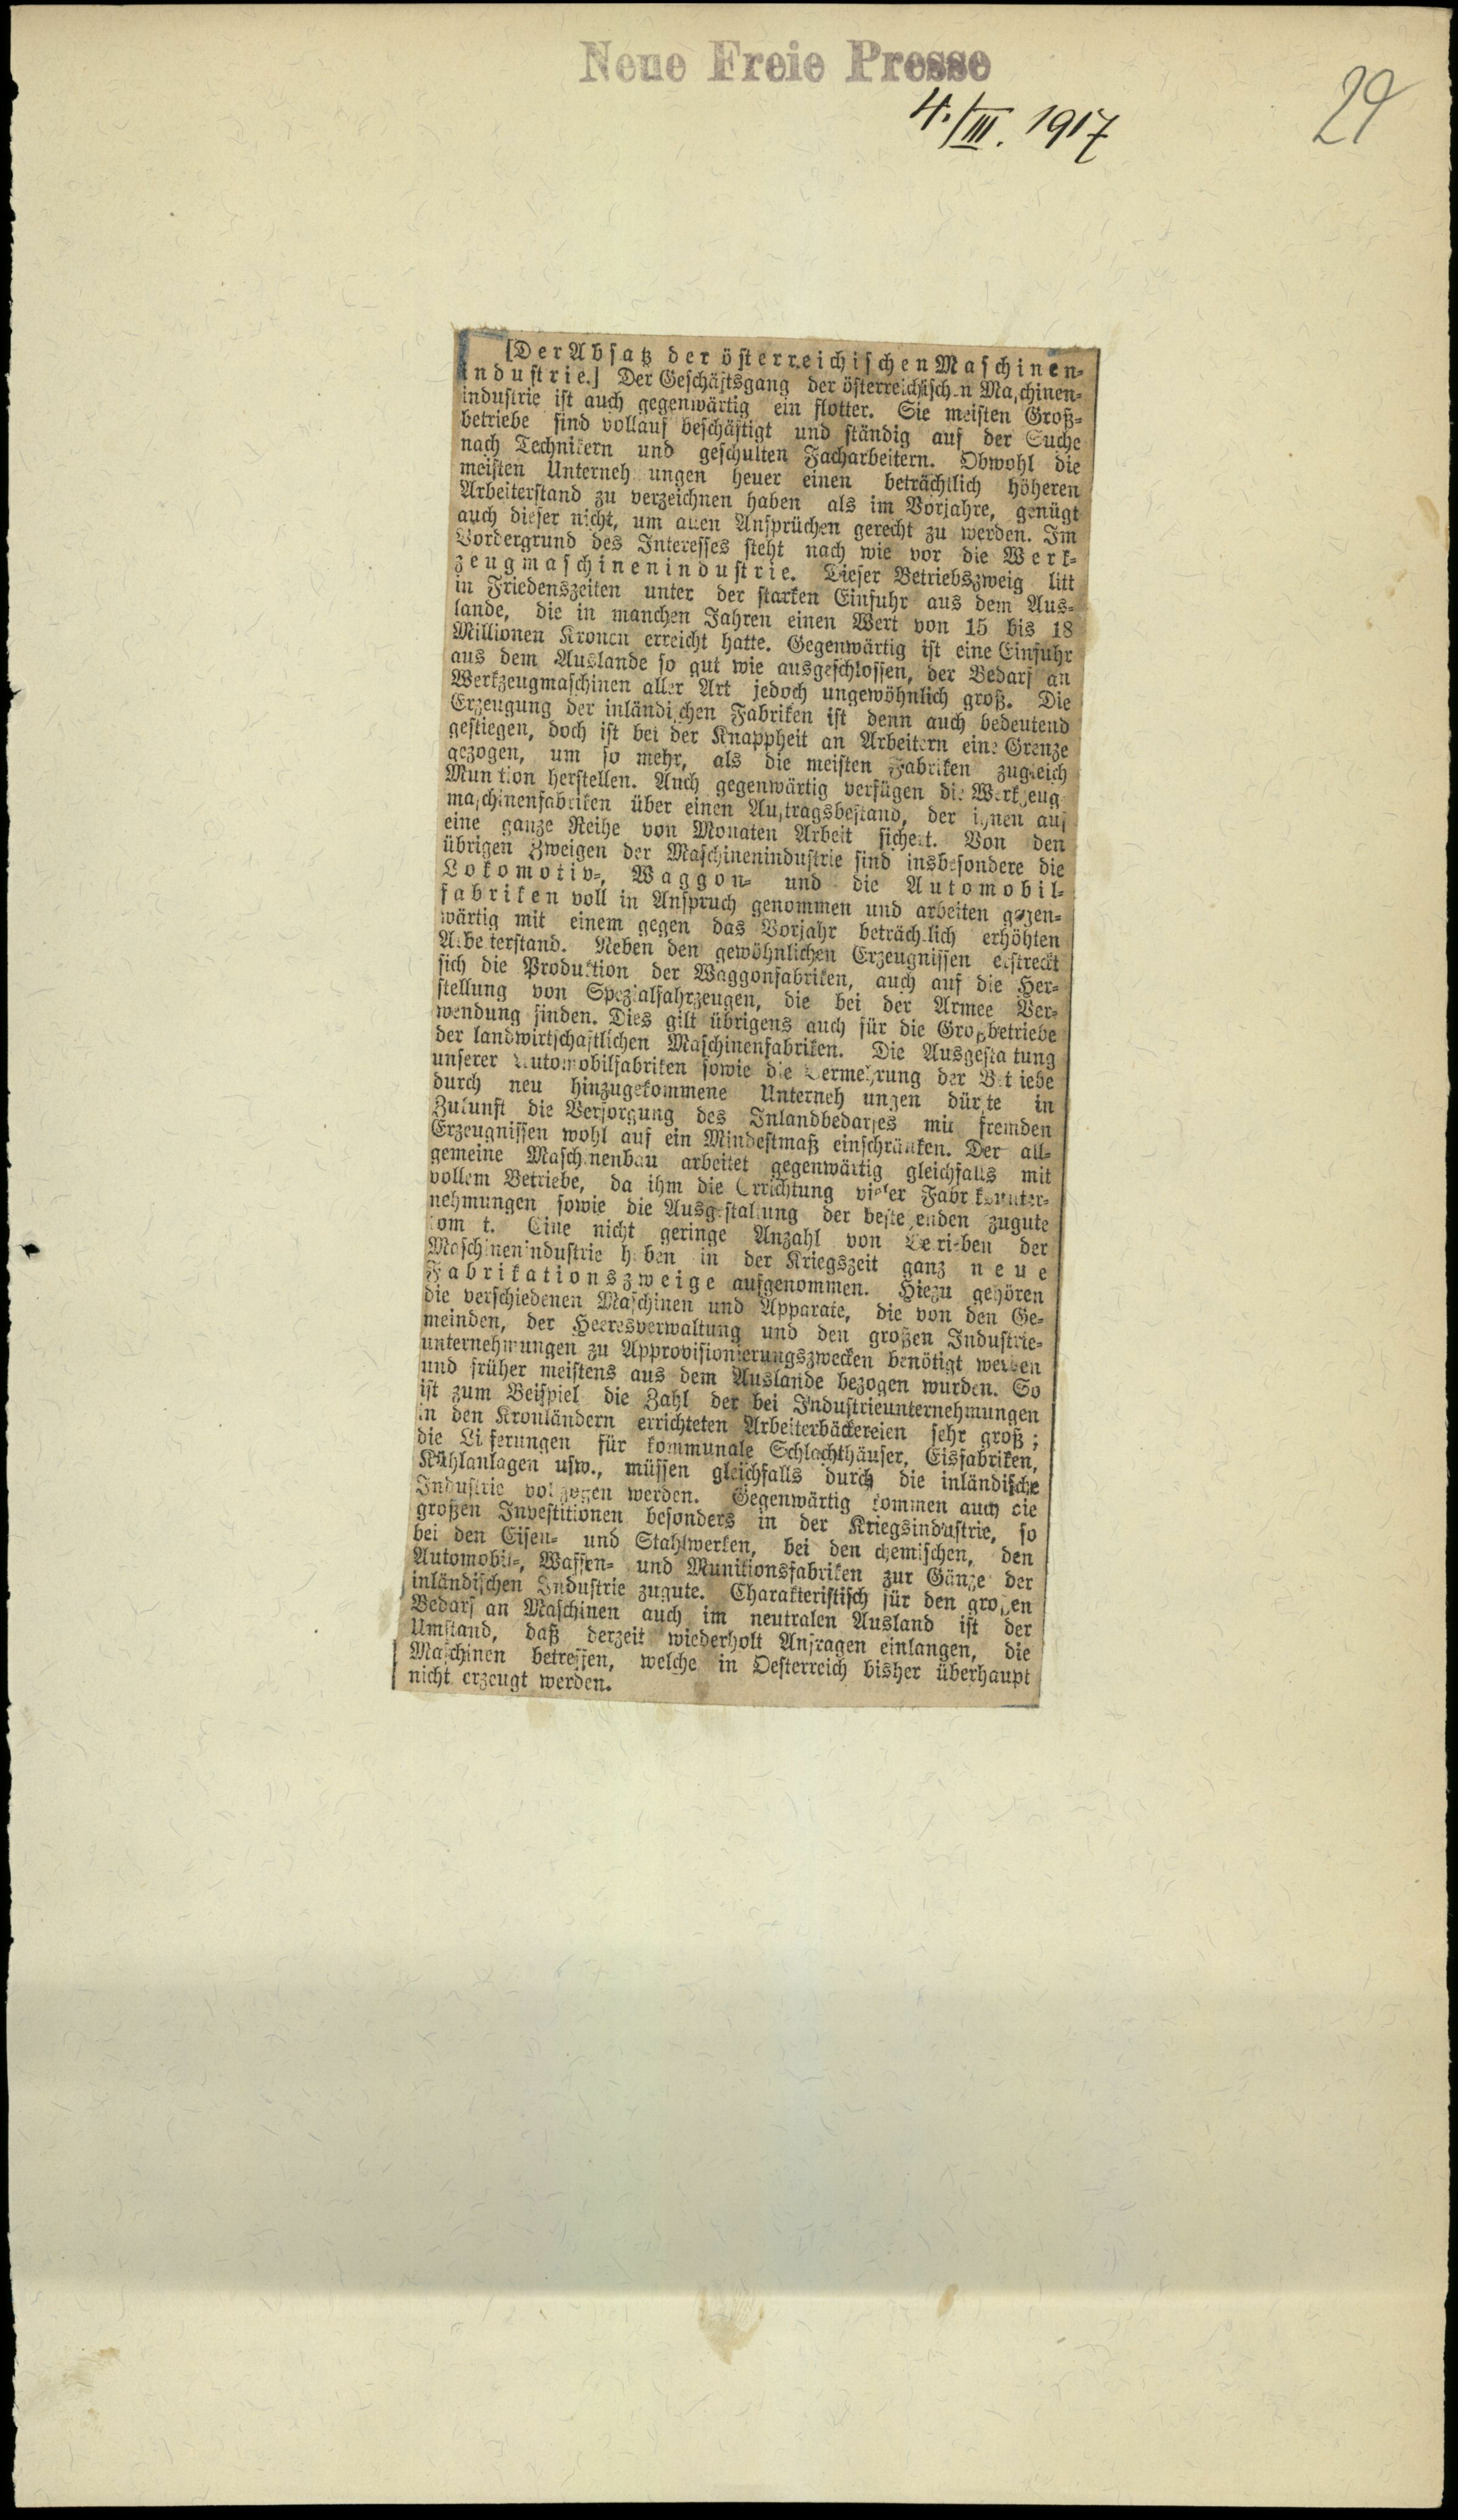 Neue Freie Presse
4./III. 1917
29
[Der Absatz der österreichischen Maschinen-
industrie.] Der Geschäftsgang der österreichischen Maschinen-
industrie ist auch gegenwärtig ein flotter. Sie meisten Groß-
betriebe sind vollauf beschäftigt und ständig auf der Suche
nach Technikern und geschulten Facharbeitern. Obwohl die
meisten Unternehmungen heuer einen beträchtlich höheren
Arbeiterstand zu verzeichnen haben als im Vorjahre, genügt
auch dieser nicht, um allen Ansprüchen gerecht zu werden. Im
Vordergrund des Interesses steht nach wie vor die Werk-
zeugmaschinenindustrie. Dieser Betriebszweig litt
in Friedenszeiten unter der starken Einfuhr aus dem Aus-
lande, die in manchen Jahren einen Wert von 15 bis 18
Millionen Kronen erreicht hatte. Gegenwärtig ist eine Einfuhr
aus dem Auslande so gut wie ausgeschlossen, der Bedarf an
Werkzeugmaschinen aller Art jedoch ungewöhnlich groß. Die
Erzeugung der inländischen Fabriken ist denn auch bedeutend
gestiegen, doch ist bei der Knappheit an Arbeitern eine Grenze
gezogen, um so mehr, als die meisten Fabriken zugleich
Munition herstellen. Auch gegenwärtig verfügen die Werkzeug-
maschinenfabriken über einen Auftragsbestand, der ihnen auf
eine ganze Reihe von Monaten Arbeit sichert. Von den
übrigen Zweigen der Maschinenindustrie sind insbesondere die
Lokomotiv-, Waggon- und die Automobil-
fabriken voll in Anspruch genommen und arbeiten gegen-
wärtig mit einem gegen das Vorjahr beträchtlich erhöhten
Arbeiterstand. Neben den gewöhnlichen Erzeugnissen erstreckt
sich die Produktion der Waggonfabriken, auch auf die Her-
stellung von Spezialfahrzeugen, die bei der Armee Ver-
wendung finden. Dies gilt übrigens auch für die Großbetriebe
der landwirtschaftlichen Maschinenfabriken. Die Ausgestaltung
unserer Automobilfabriken sowie die Vermehrung der Betriebe
durch neu hinzugekommene Unternehmungen dürfte in
Zukunft die Versorgung des Inlandbedarfes mit fremden
Erzeugnissen wohl auf ein Mindestmaß einschränken. Der all-
gemeine Maschinenbau arbeitet gegenwärtig gleichfalls mit
vollem Betriebe, da ihm die Errichtung vieler Fabriksunter-
nehmungen sowie die Ausgestaltung der bestehenden zugute
kommt. Eine nicht geringe Anzahl von Betrieben der
Maschinenindustrie haben in der Kriegszeit ganz neue
Fabrikationszweige aufgenommen. Hiezu gehören
die verschiedenen Maschinen und Apparate, die von den Ge-
meinden, der Heeresverwaltung und den großen Industrie-
unternehmungen zu Approvisionierungszwecken benötigt werden
und früher meistens aus dem Auslande bezogen wurden. So
ist zum Beispiel die Zahl der bei Industrieunternehmungen
in den Kronländern errichteten Arbeiterbäckereien sehr groß;
die Lieferungen für kommunale Schlachthäuser, Eisfabriken,
Kühlanlagen usw., müssen gleichfalls durch die inländische
Industrie vollzogen werden. Gegenwärtig kommen auch die
großen Investitionen besonders in der Kriegsindustrie, so
bei den Eisen- und Stahlwerken, bei den chemischen, den
Automobil-, Waffen- und Munitionsfabriken zur Gänze der
inländischen Industrie zugute. Charakteristisch für den großen
Bedarf an Maschinen auch im neutralen Ausland ist der
Umstand, daß derzeit wiederholt Anfragen einlangen, die
Maschinen betreffen, welche in Oesterreich bisher überhaupt
nicht erzeugt werden.